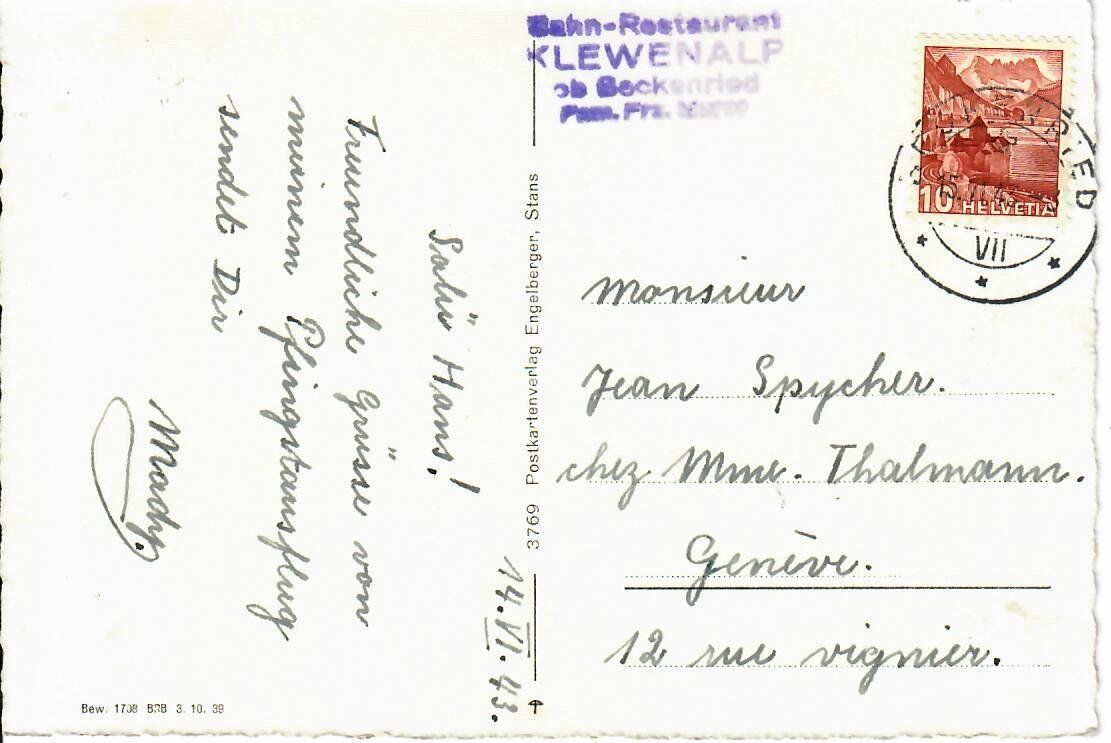 14.VI.43.
Salü Hans!
Freundliche Grüsse von
meinem Pfingstausflug
sendet Dir
Mady.
Bew. 1708 BRB 3. 10. 39
3769 Postkartenverlag Engelberger, Stans
Bahn-Restaurant
KLEWENALP
ob Beckenried
Fam. Frz.
10 HELVETIA
BECKENRIED
15.VI.43
VII
Monsieur
Jean Spycher.
chez Mme. Thalmann.
Genève.
12 rue vignier.